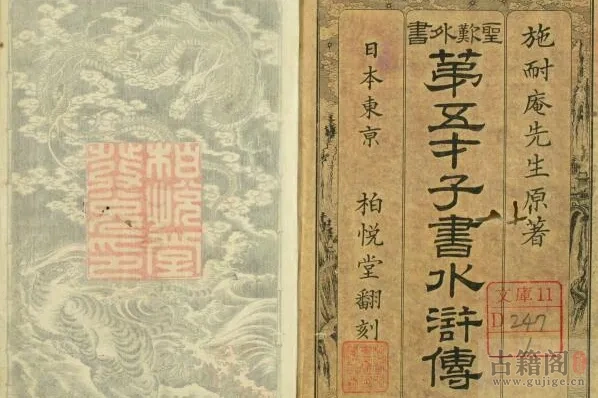 聖歎外書
施耐庵先生原著
苐五才子書水滸傳
日本東亰 柏悦堂翻刻
柏悦堂
文庫11
D 247
古籍阁
www.gujige.cn